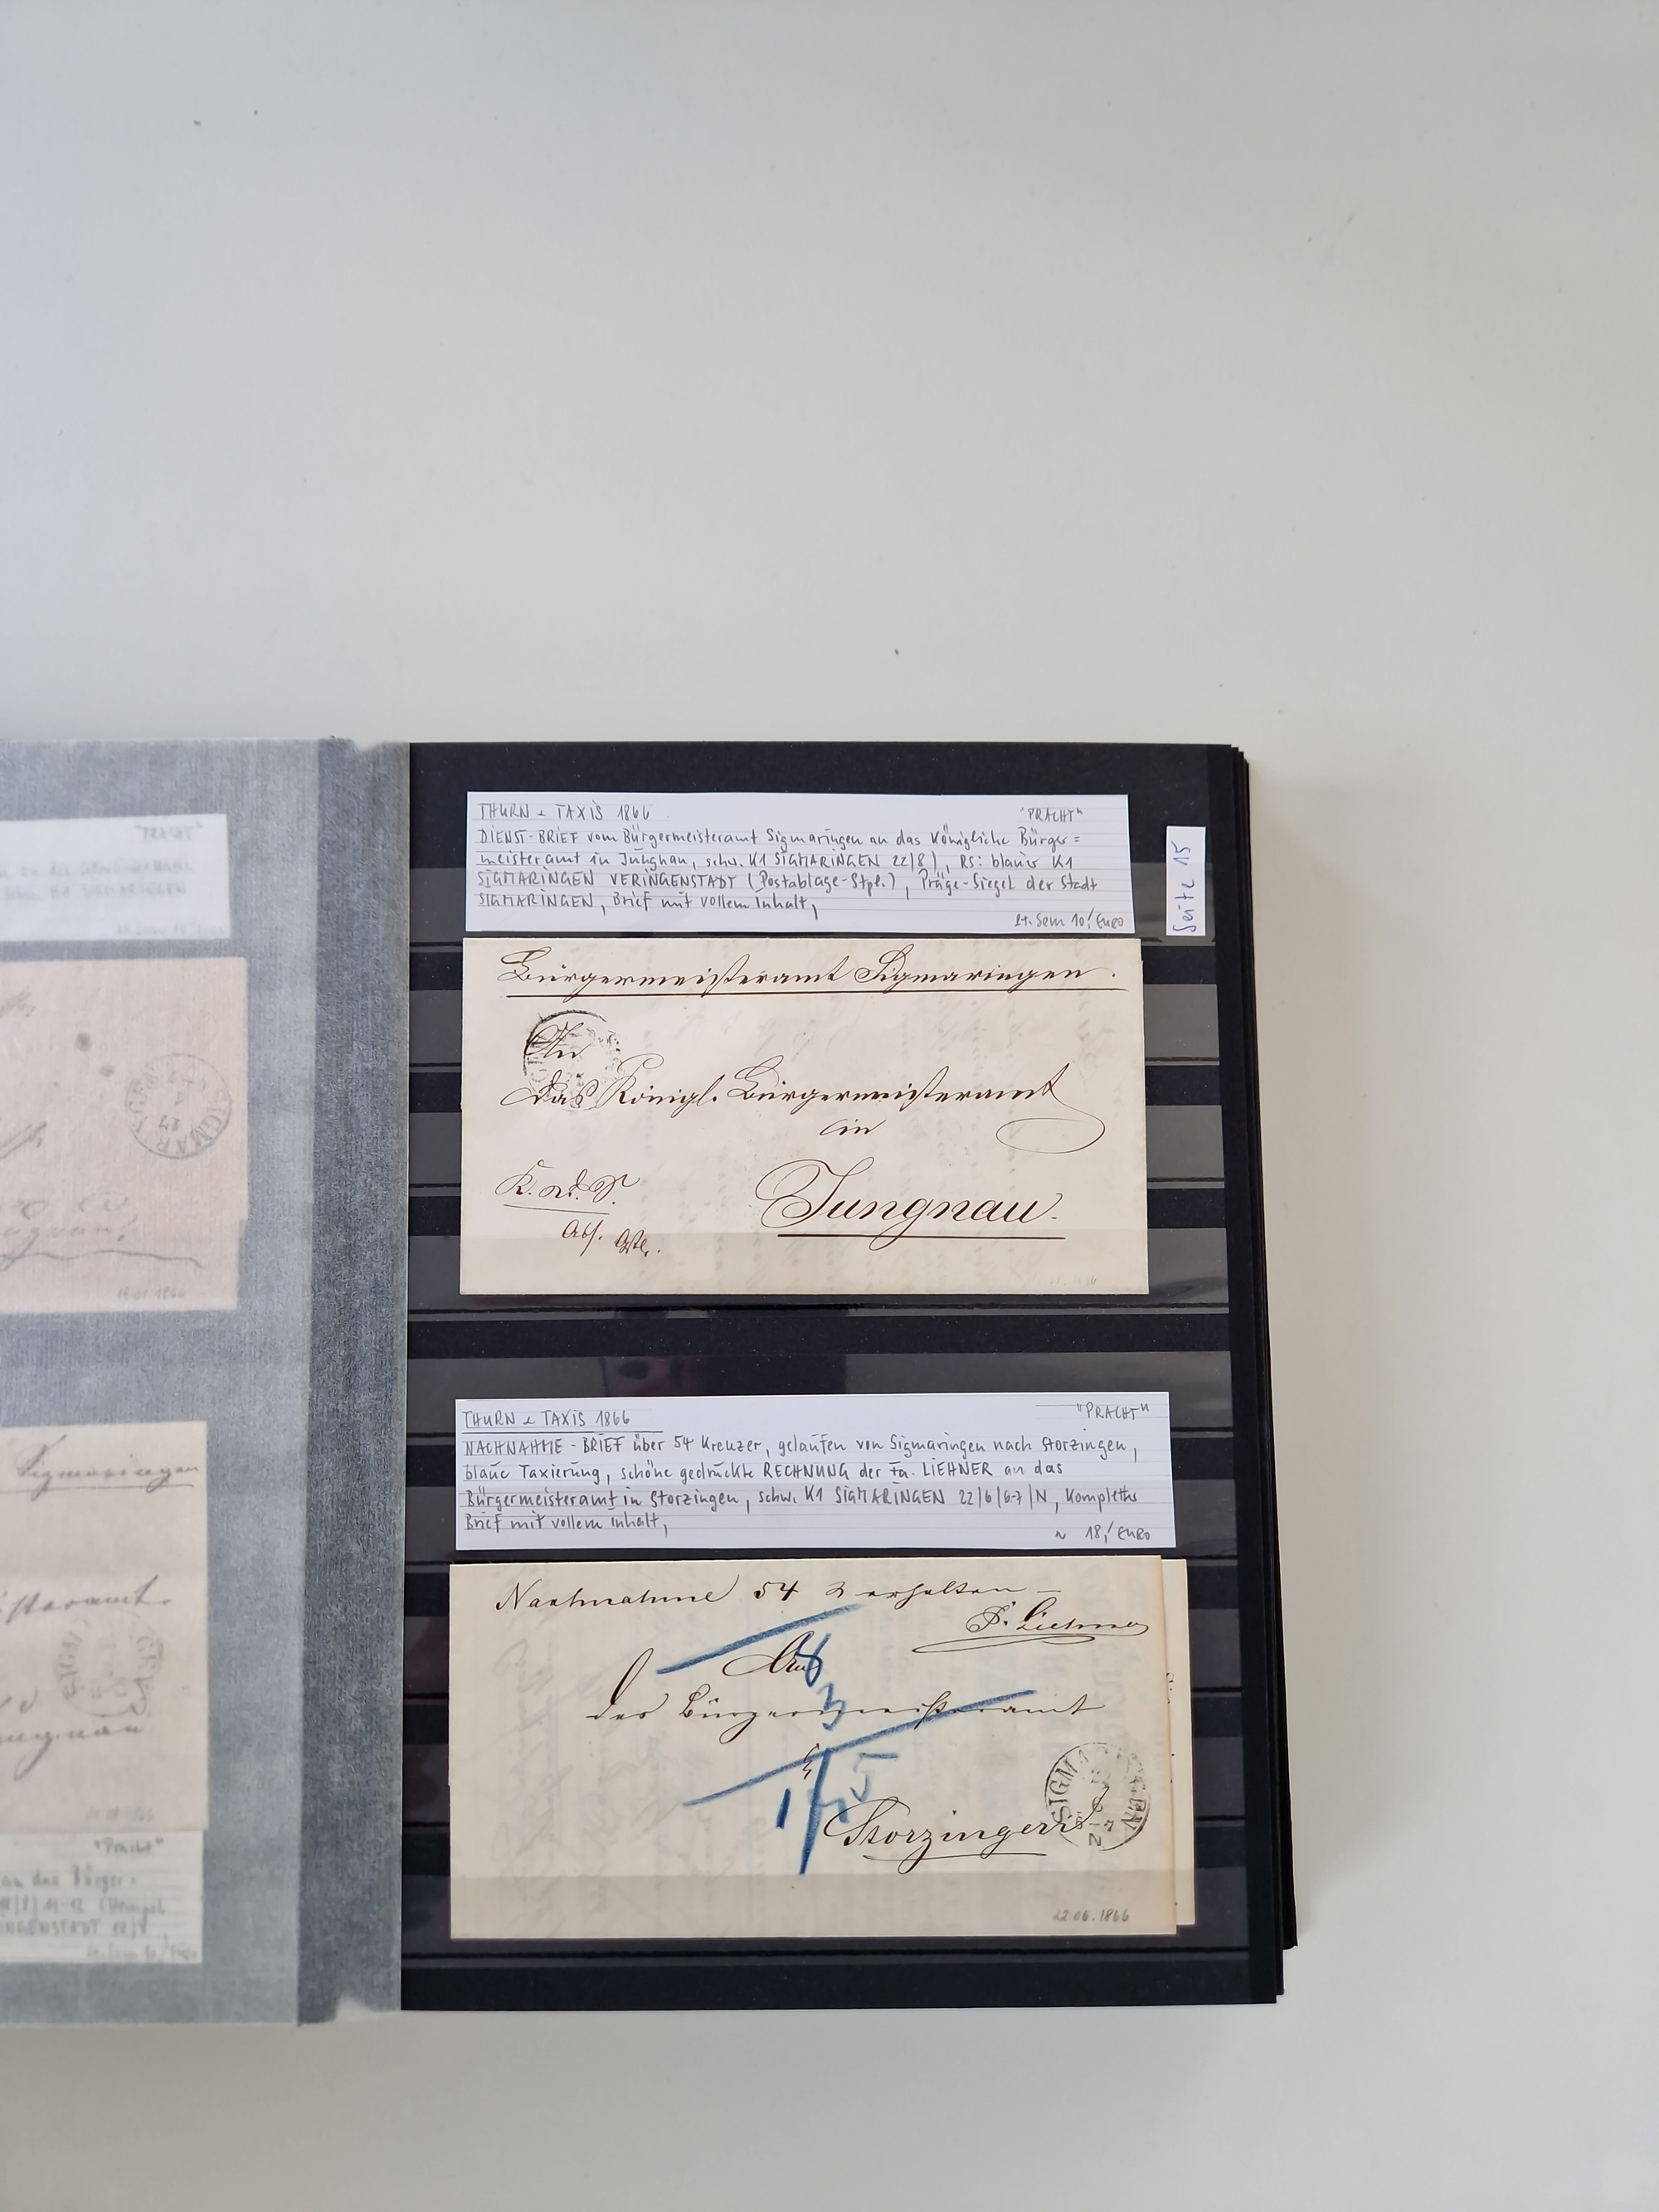 THURN & TAXIS 1866 "PRACHT"
DIENST-BRIEF vom Bürgermeisteramt Sigmaringen an das Königliche Bürger=
meisteramt in Jungnau, schw. K1 SIGMARINGEN 22/8), RS: blauer K1
SIGMARINGEN VERINGENSTADT (Postablage-Stpl.), Präge-Siegel der Stadt
SIGMARINGEN, Brief mit vollem Inhalt,
lt. Sem 10,' EURO
Seite 15
Bürgermeisteramt Sigmaringen.
An
das Königl. Bürgermeisteramt
in
Jungnau.
K. d. S.
THURN & TAXIS 1866 "PRACHT"
NACHNAHME-BRIEF über 54 Kreuzer, gelaufen von Sigmaringen nach Storzingen,
blaue Taxierung, schöne gedruckte RECHNUNG der Fa. LIEHNER an das
Bürgermeisteramt in Storzingen, schw. K1 SIGMARINGEN 22/6/6-7/N, Kompletter
Brief mit vollem Inhalt,
~ 18,' EURO
Nachnahme 54 erhalten
F. Liehner
An
das Bürgermeisteramt
Storzingen
SIGMA
22.06.1866
"PRACHT"
SIGMARINGEN
Sigmaringen
"Pracht"
an das Bürger=